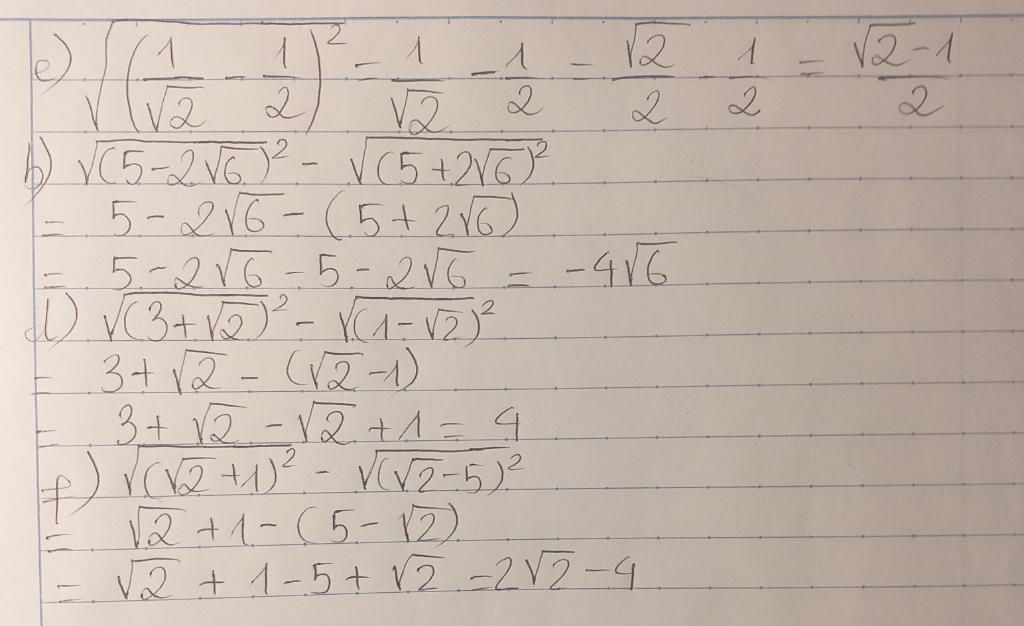 e) √(1/√2 - 1/2)² = 1/√2 - 1/2 = √2/2 - 1/2 = (√2-1)/2
b) √(5-2√6)² - √(5+2√6)²
= 5 - 2√6 - (5 + 2√6)
= 5 - 2√6 - 5 - 2√6 = -4√6
d) √(3+√2)² - √(1-√2)²
= 3 + √2 - (√2 - 1)
= 3 + √2 - √2 + 1 = 4
f) √(√2+1)² - √(√2-5)²
= √2 + 1 - (5 - √2)
= √2 + 1 - 5 + √2 = 2√2 - 4